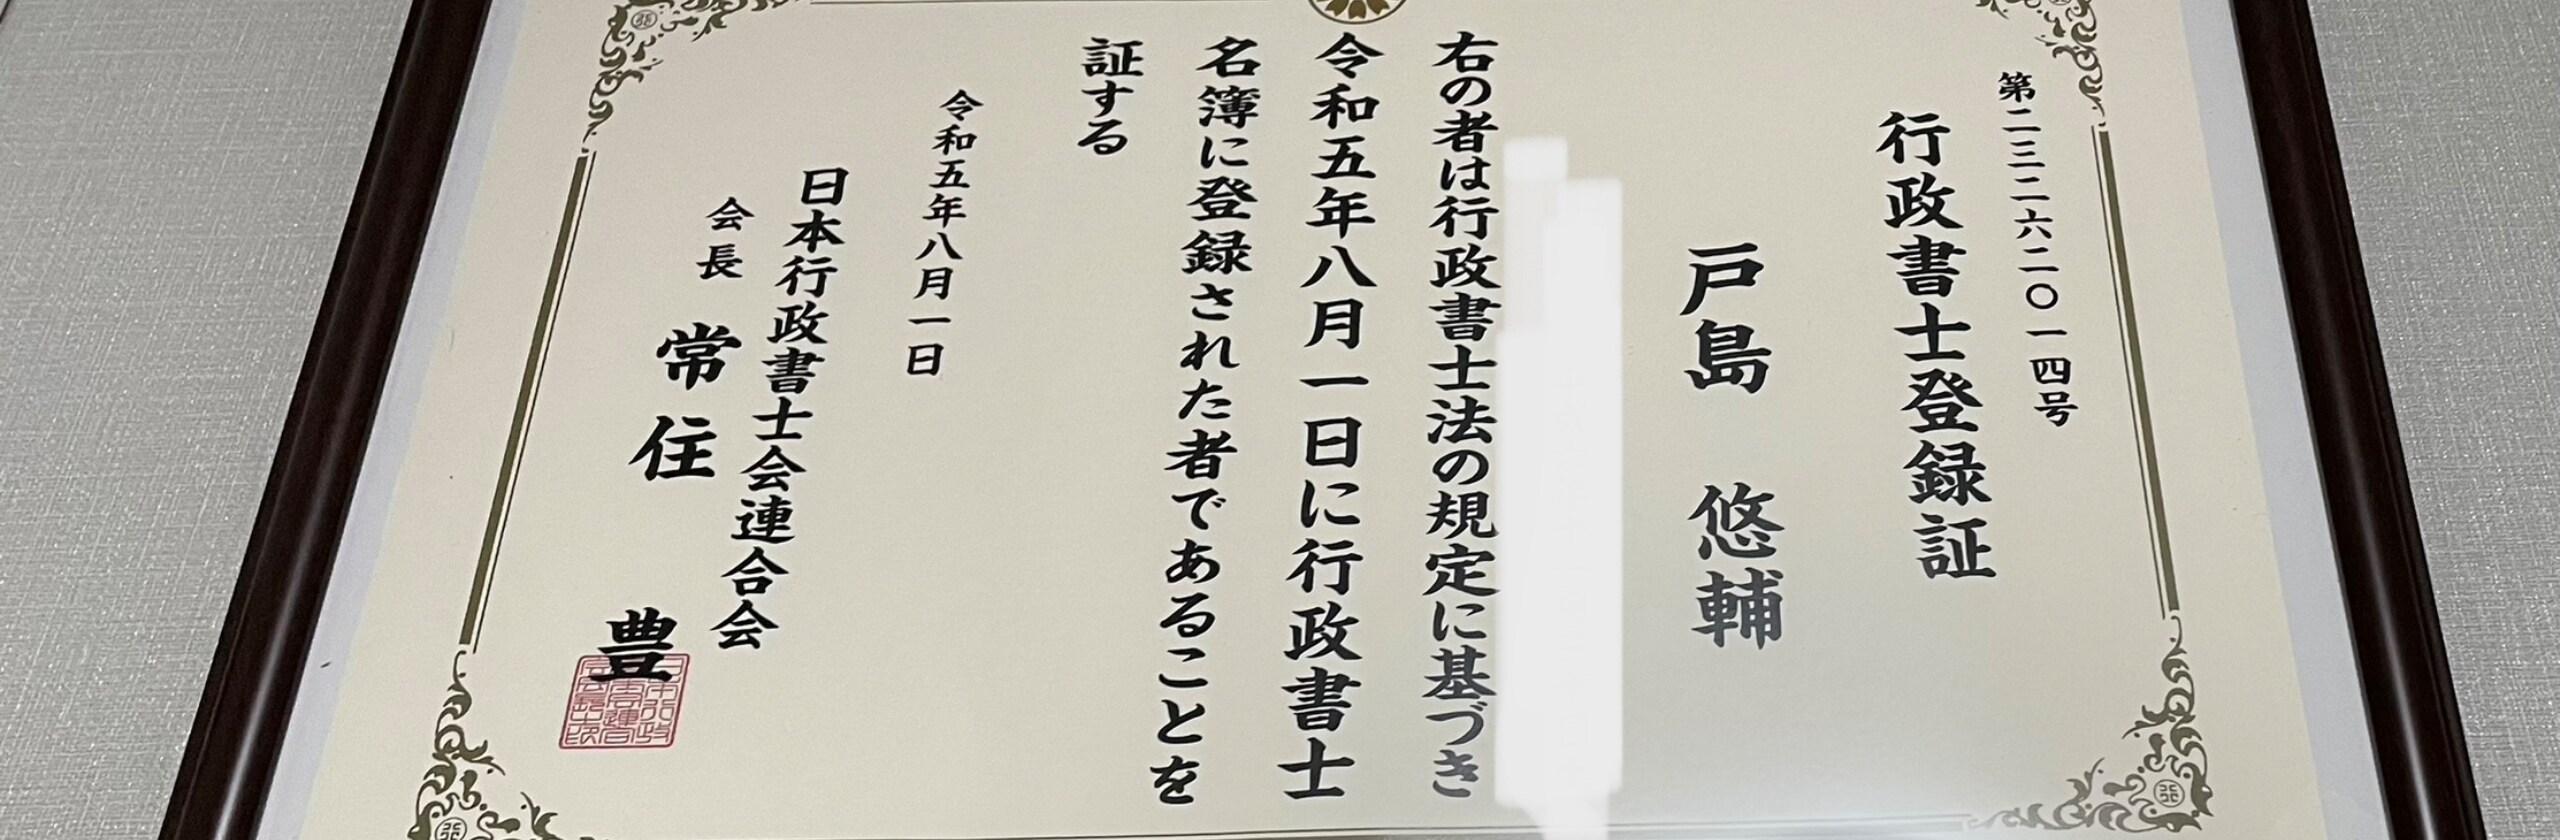 第二三二六二〇一四号
行政書士登録証
戸島 悠輔
右の者は行政書士法の規定に基づき
令和五年八月一日に行政書士
名簿に登録された者であることを
証する
令和五年八月一日
日本行政書士会連合会
会長 常住 豊